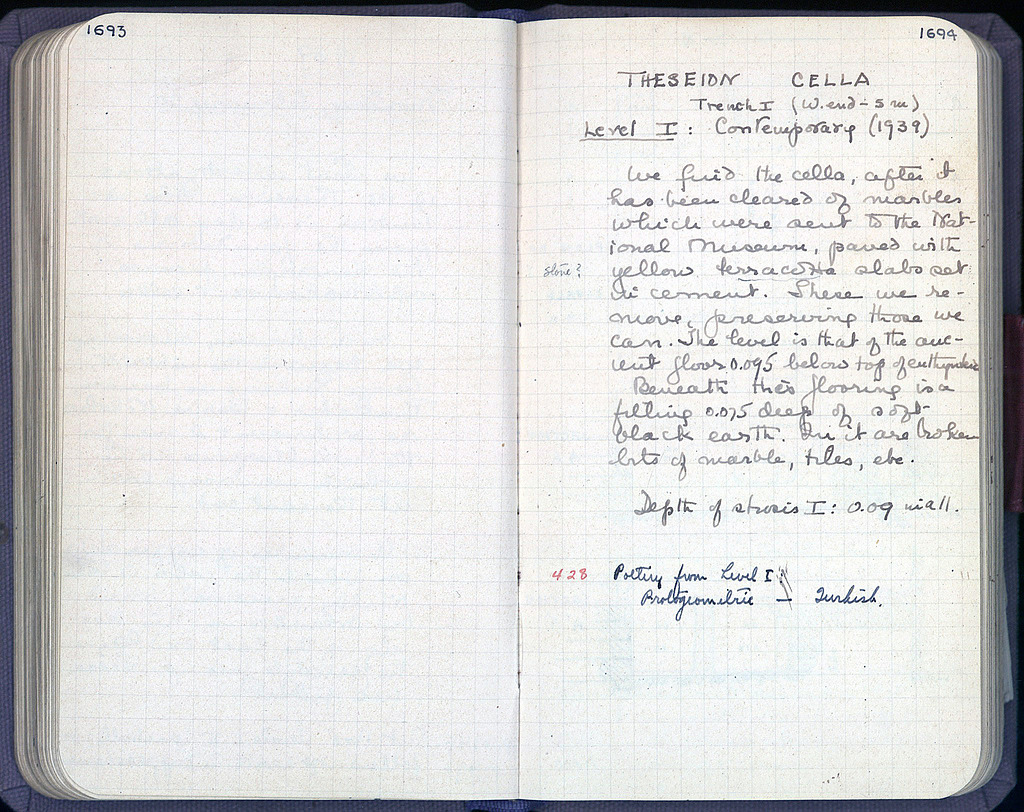 1693
1694
THESEION CELLA
Trench I (W. end - 5 m)
Level I: Contemporary (1939)
We find the cella, after it
has been cleared of marbles
which were sent to the Nat-
ional Museum, paved with
stone?
yellow terracotta slabs set
in cement. These we re-
move, preserving those we
can. The level is that of the anc-
ient floor 0.095 below top of euthynteria
Beneath this flooring is a
filling 0.075 deep of soft
black earth. In it are broken
bits of marble, tiles, etc.
Depth of strosis I: 0.09 in all.
428 Pottery from Level I
Protogeometric — Turkish.